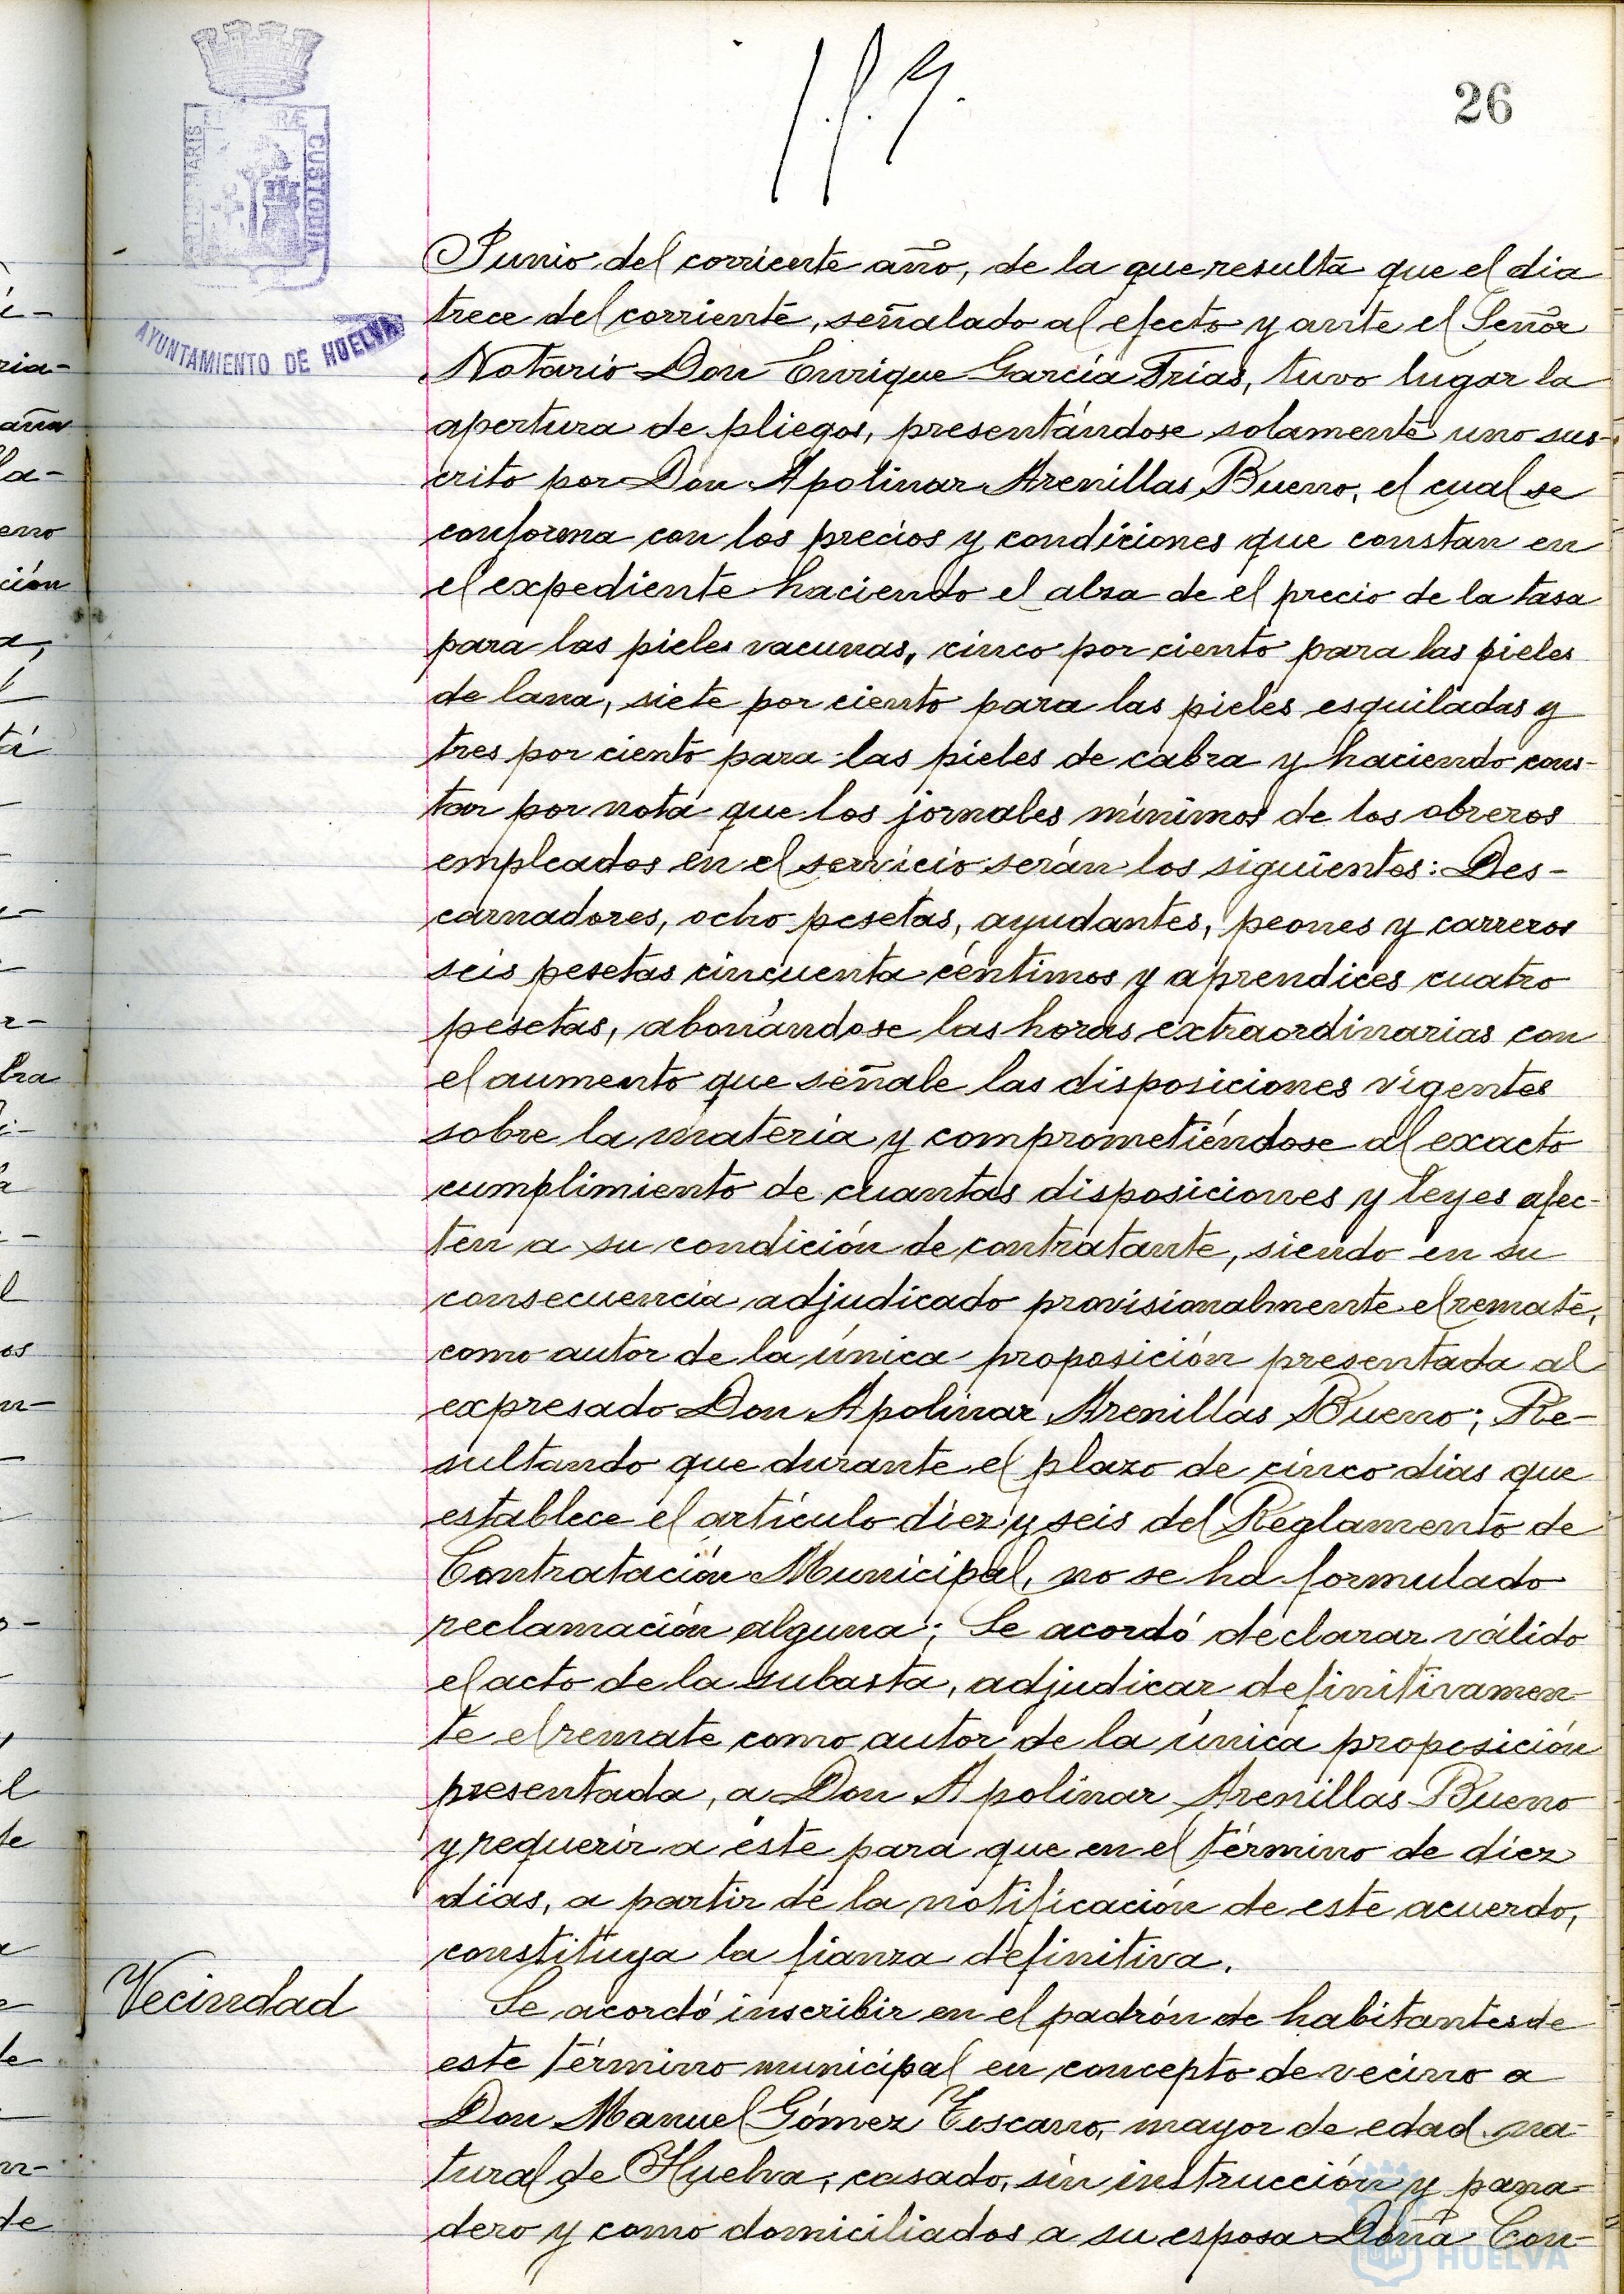 26
AYUNTAMIENTO DE HUELVA
Junio del corriente año, de la que resulta que el dia
trece del corriente, señalado al efecto y ante el Señor
Notario Don Enrique García Frías, tuvo lugar la
apertura de pliegos, presentándose solamente uno sus-
crito por Don Apolinar Arenillas Bueno, el cual se
conforma con los precios y condiciones que constan en
el expediente haciendo el alza de el precio de la tasa
para las pieles vacunas, cinco por ciento para las pieles
de lana, siete por ciento para las pieles esquiladas y
tres por ciento para las pieles de cabra y haciendo cons-
tar por nota que los jornales mínimos de los obreros
empleados en el servicio serán los siguientes: Des-
carnadores, ocho pesetas, ayudantes, peones y carreros
seis pesetas cincuenta céntimos y aprendices cuatro
pesetas, abonándose las horas extraordinarias con
el aumento que señale las disposiciones vigentes
sobre la materia y comprometiéndose al exacto
cumplimiento de cuantas disposiciones y leyes afec-
ten a su condición de contratante, siendo en su
consecuencia adjudicado provisionalmente el remate,
como autor de la única proposición presentada al
expresado Don Apolinar Arenillas Bueno; Re-
sultando que durante el plazo de cinco dias que
establece el artículo diez y seis del Reglamento de
Contratación Municipal, no se ha formulado
reclamación alguna; Se acordó declarar válido
el acto de la subasta, adjudicar definitivamen-
te el remate como autor de la única proposición
presentada, a Don Apolinar Arenillas Bueno
y requerir a éste para que en el término de diez
dias, a partir de la notificación de este acuerdo,
constituya la fianza definitiva.
Vecindad
Se acordó inscribir en el padrón de habitantes de
este término municipal en concepto de vecino a
Don Manuel Gómez Toscano, mayor de edad, na-
tural de Huelva, casado, sin instrucción y pana-
dero y como domiciliados a su esposa Doña Con-
HUELVA